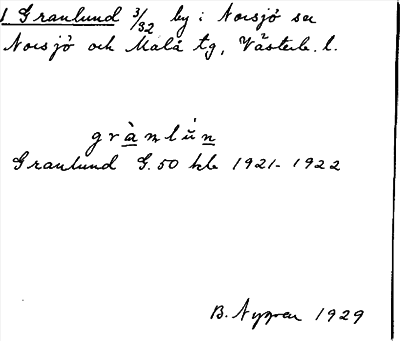 1 Granlund 3/32 by i Norsjö sn
Norsjö och Malå tg, Västerb. l.
gràmlún
Granlund G. 50 kb 1921-1922
B. Nygren 1929